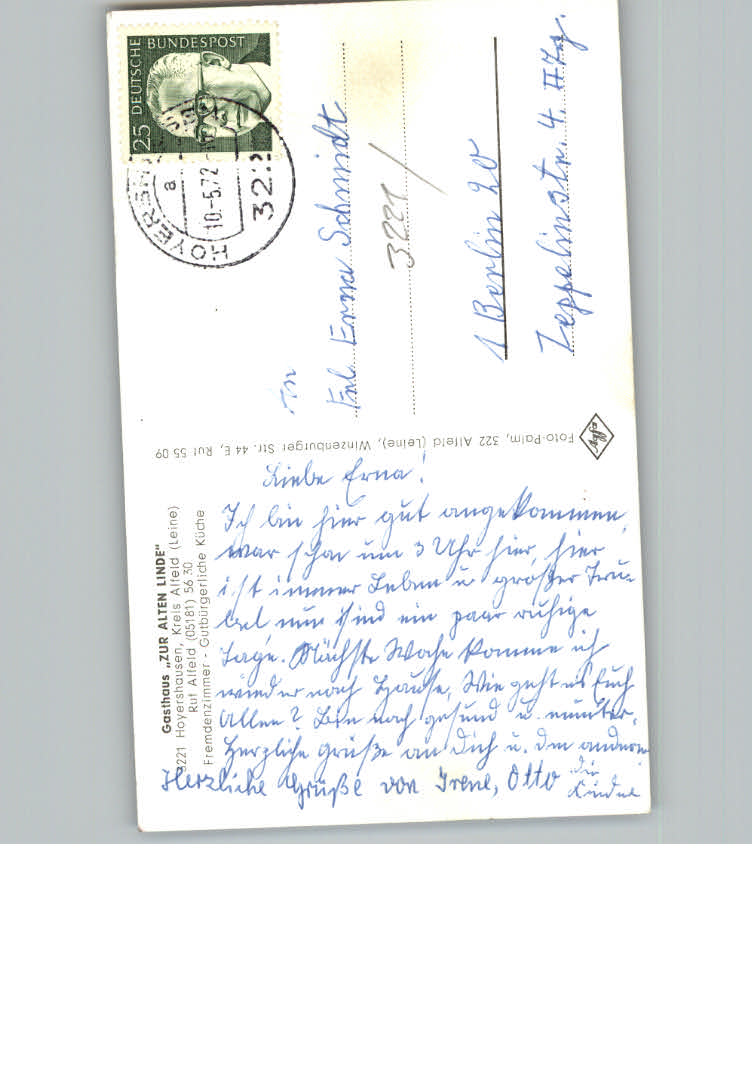 Gasthaus „ZUR ALTEN LINDE"
3221 Hoyershausen, Kreis Alfeld (Leine)
Ruf Alfeld (05181) 56 30
Fremdenzimmer - Gutbürgerliche Küche
Liebe Erna!
Ich bin hier gut angekommen,
war schon um 3 Uhr hier, hier
ist immer Leben u. großer Tru-
bel nun sind ein paar ruhige
Tage. Nächste Woche komme ich
wieder nach Hause, Wie geht es Euch
Allen? Bin noch gesund u. munter.
Herzliche Grüße an Dich u. den anderen
Herzliche Grüße von Irene, Otto
die
Kinder
Foto-Palm, 322 Alfeld (Leine), Winzenburger Str. 44 E, Ruf 55 09
Agfa
25 DEUTSCHE BUNDESPOST
HOYERSH
a
10.-5.72
322
An
Frl. Erna Schmidt
3221/
1 Berlin 20
Zeppelinstr. 4. II Itg.